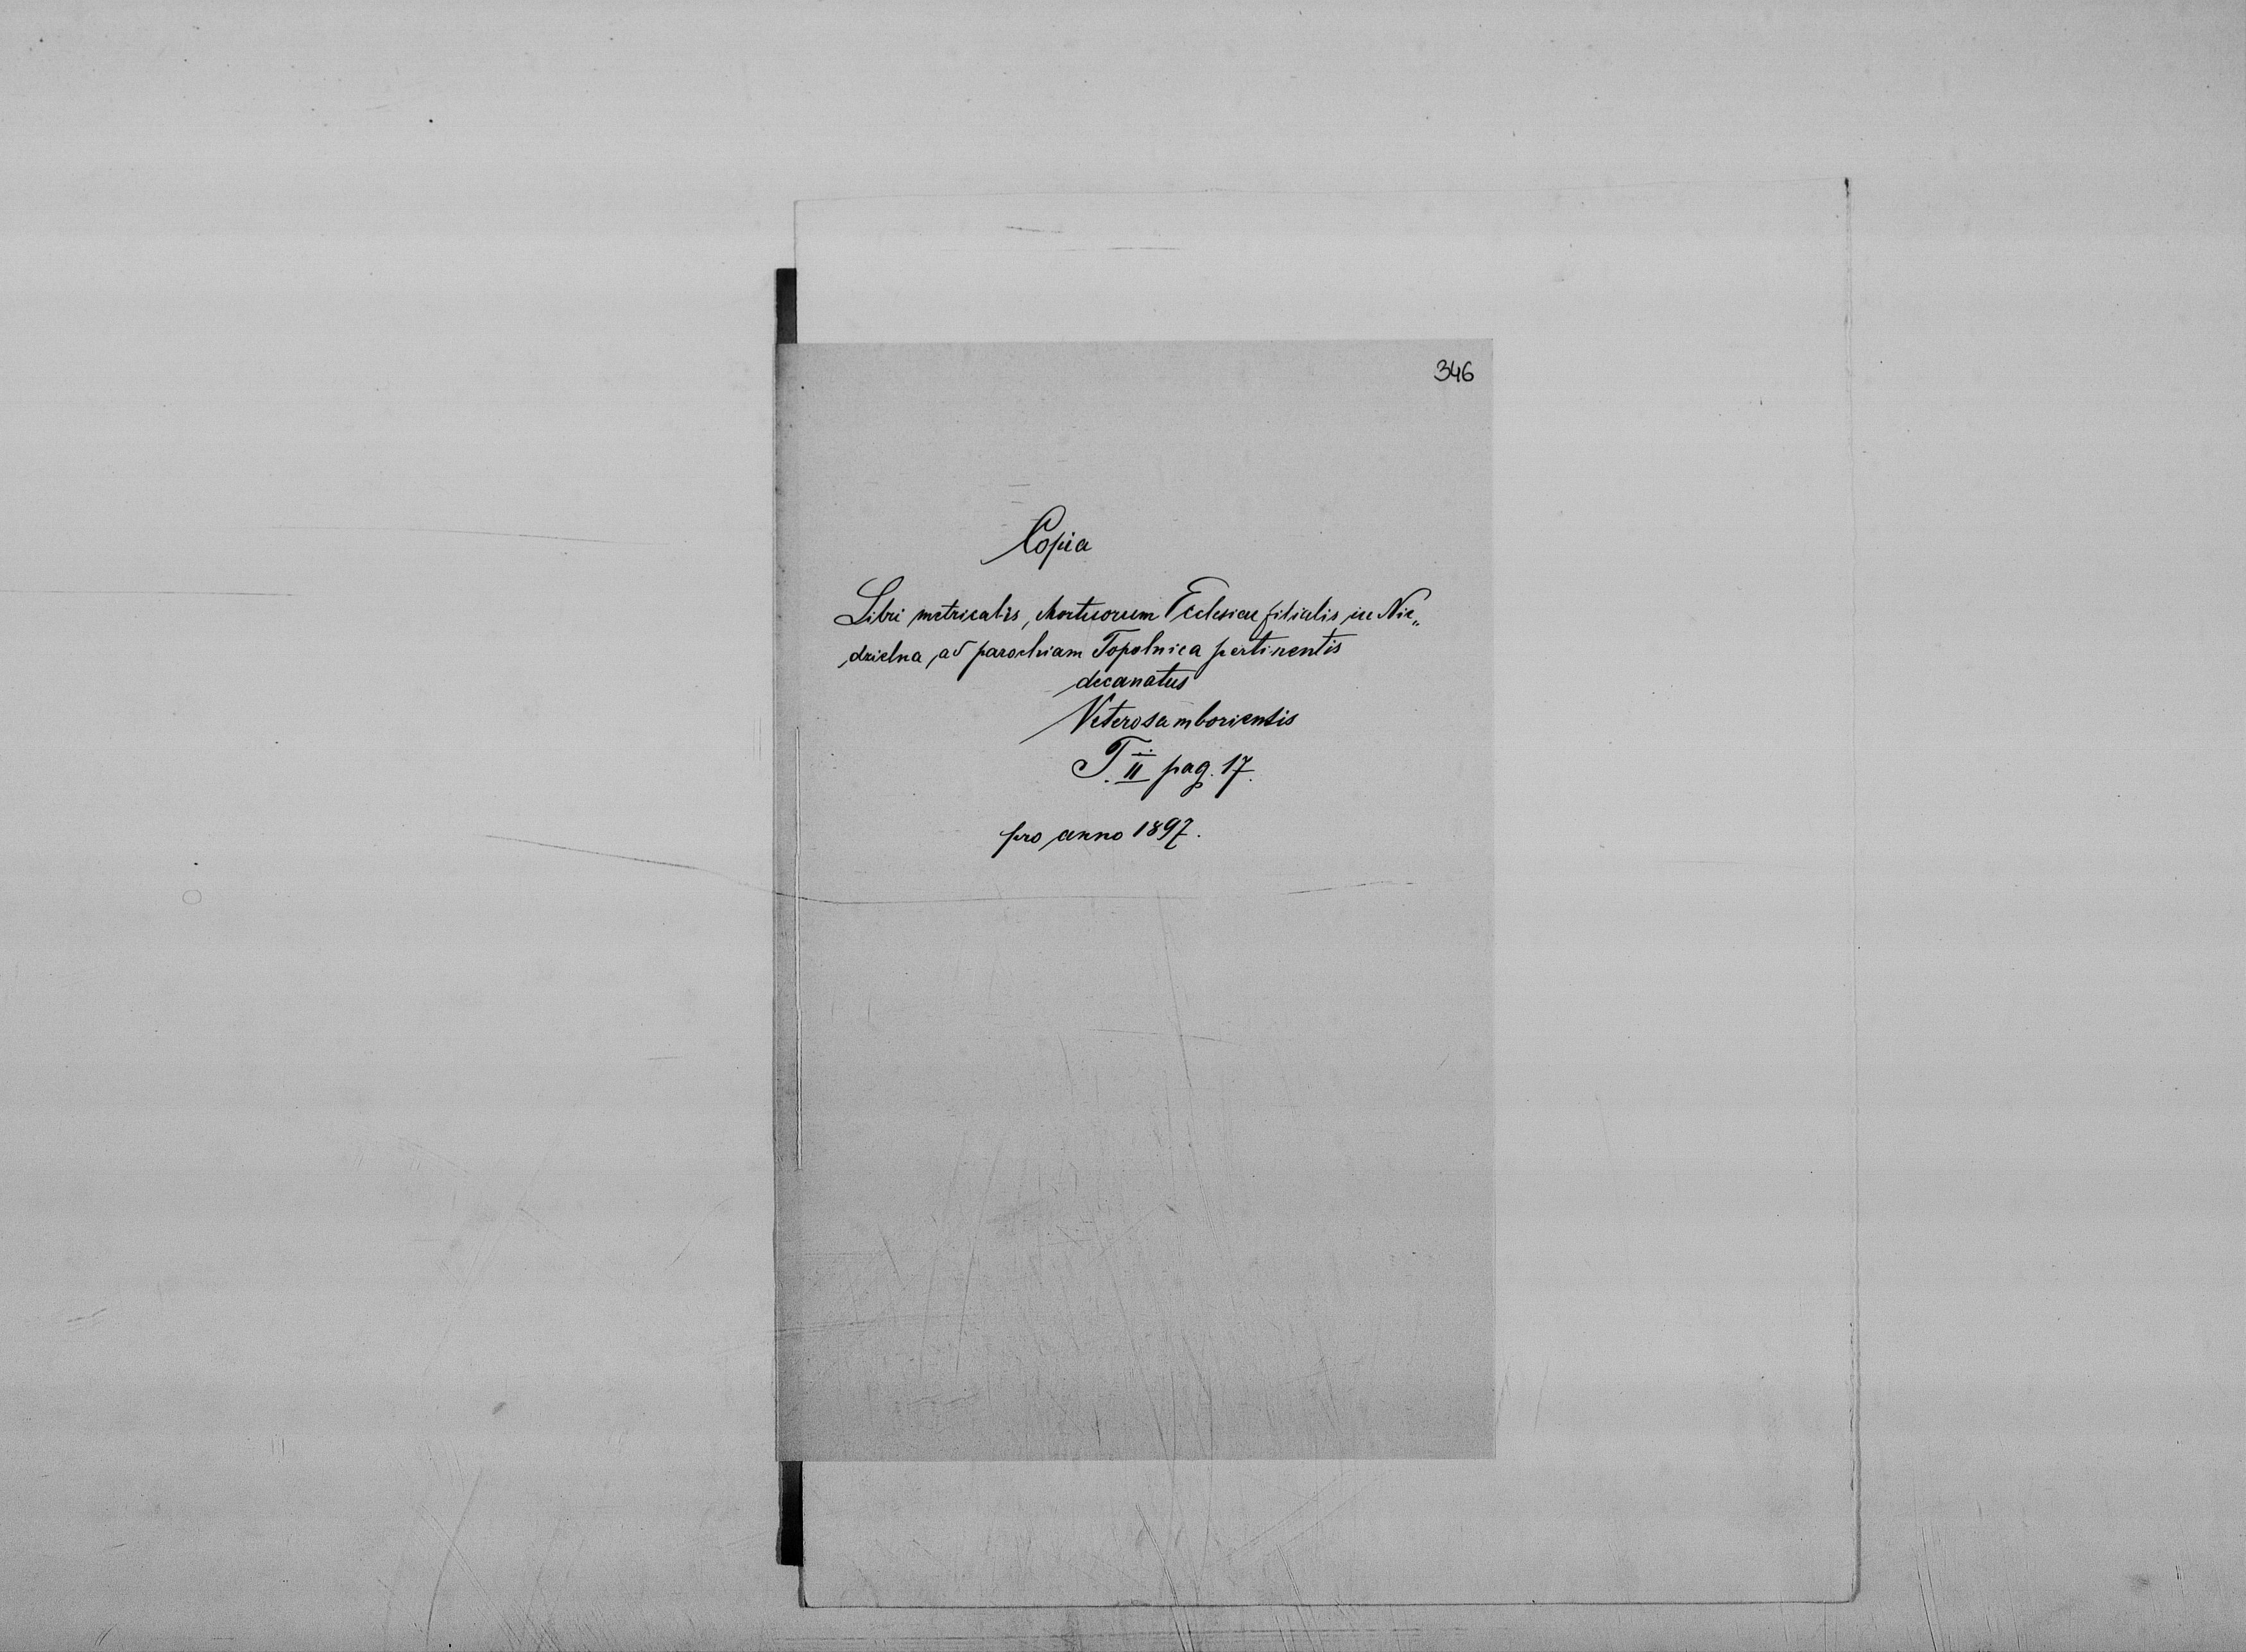 346
Copia
Libri metricalis, Mortuorum Ecclesiae filialis in Nie„
dzielna ad parochiam Topolnica pertinentis
decanatus
Veterosamboriensis
T. II pag. 17.
pro anno 1897.